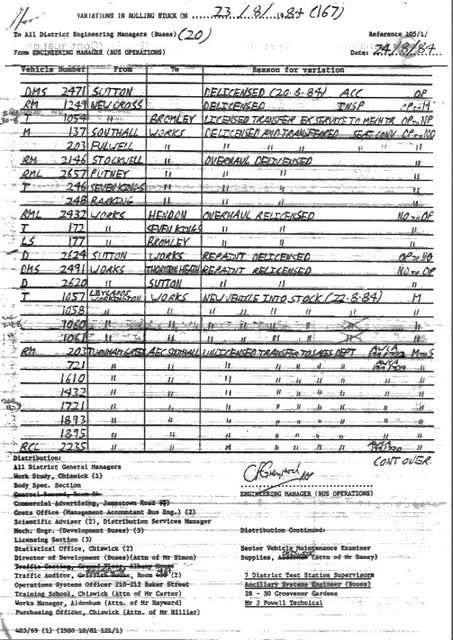 VARIATIONS IN ROLLING STOCK ON 23/8/1984 (167)
To All District Engineering Managers (Buses) (20) Reference 105/1/
From ENGINEERING MANAGER (BUS OPERATIONS) Date: 24/8/84
Vehicle Number From To Reason for variation
DMS 2471 SUTTON DELICENSED (20.8.84) ACC OP
RM 1249 NEW CROSS DELICENSED INSP OP to M
T 1054 " BROMLEY LICENSED TRANSFER EX SERVICE TO MECH TR OP to NP
M 137 SOUTHALL WORKS DELICENSED AND TRANSFERED SEAT CONV OP to NO
203 FULWELL " " " " "
RM 2146 STOCKWELL " OVERHAUL DELICENSED "
RML 2657 PUTNEY " " " "
T 246 SEVEN KINGS " " " "
248 BARKING " " " "
RML 2432 WORKS HENDON OVERHAUL RELICENSED NO to OP
T 172 " SEVEN KINGS " " "
LS 177 " BROMLEY " " "
D 2624 SUTTON WORKS REPAINT DELICENSED OP to NO
DMS 2491 WORKS THORNTON HEATH REPAINT RELICENSED NO to OP
D 2620 " SUTTON " " "
T 1057 LEYLANDS WORKINGTON WORKS NEW VEHICLE INTO STOCK (22.8.84) M
1058 " " " " " "
1060 " " " " "
1061 " " " " "
RM 203 TURNHAM GREEN AEC SOUTHALL UNLICENSED TRANSFER TO SALES DEPT M to S
721 " " " " " " "
1610 " " " " " " "
1432 " " " " " " "
1721 " " " " " " "
1893 " " " " " " "
1895 " " " " " " "
RCL 2235 " " " " " " "
CONT OVER.
Distribution:
All District General Managers
Work Study, Chiswick (1)
Body Spec. Section
Control Record, Room
Commercial Advertising, Jamestown Road
Costs Office (Management Accountant Bus Eng.) (2)
Scientific Adviser (2), Distribution Services Manager
Mech. Engr. (Development Buses) (3)
Licensing Section (3)
Statistical Office, Chiswick (2)
Director of Development (Buses)(Attn of Mr Simon)
Traffic Costing, Ground Floor, Albany House
Traffic Auditor, Griffith House, Room (2)
Operations Systems Officer 210-212 Baker Street
Training School, Chiswick (Attn of Mr Carter)
Works Manager, Aldenham (Attn of Mr Hayward)
Purchasing Officer, Chiswick (Attn of Mr Willier)
ENGINEERING MANAGER (BUS OPERATIONS)
Distribution Continued:
Senior Vehicle Maintenance Examiner
Supplies, (Attn of Mr Dancy)
7 District Test Station Supervisors
Ancillary Systems Engineer (Buses)
28 - 30 Grosvenor Gardens
Mr J Powell Technical
403/69 (1) (2500 10/81 121/1)